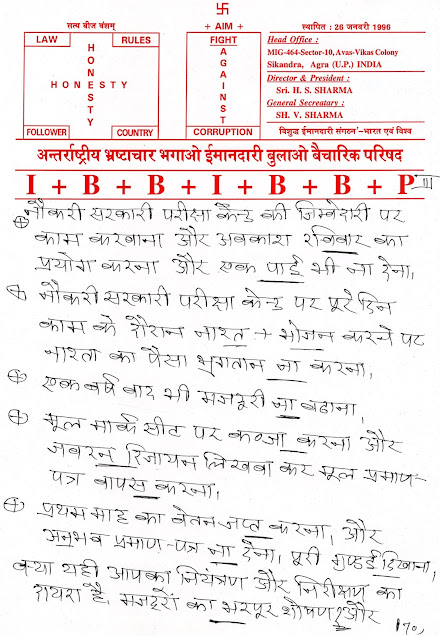 सत्य बीज वंशम्
LAW
RULES
HONESTY
HONESTY
FOLLOWER
COUNTRY
卐
+ AIM +
FIGHT
AGAINST
CORRUPTION
स्थापित : 26 जनवरी 1996
Head Office :
MIG-464-Sector-10, Avas-Vikas Colony
Sikandra, Agra (U.P.) INDIA
Director & President :
Sri. H. S. SHARMA
General Secreatary :
SH. V. SHARMA
विशुद्ध ईमानदारी संगठन'-भारत एवं विश्व
अन्तर्राष्ट्रीय भ्रष्टाचार भगाओ ईमानदारी बुलाओ बैचारिक परिषद
I + B + B + I + B + B + P III
नौकरी सरकारी परीक्षा केन्द्र की जिम्मेदारी पर
काम करवाना और अवकाश रविवार का
प्रयोग करना और एक पाई भी ना देना,
नौकरी सरकारी परीक्षा केन्द्र पर पूरे दिन
काम के दौरान नाश्ता + भोजन करने पर
नाश्ता का पैसा भुगतान ना करना,
एक वर्ष बाद भी मजदूरी ना बढाना,
मूल मार्कसीट पर कब्जा करना और
जबरन रिजायन लिखवा कर मूल प्रमाण-
पत्र वापस करना,
प्रथम माह का वेतन जप्त करना, और
अनुभव प्रमाण-पत्र ना देना, पूरी गुण्डई दिखाना,
क्या यही आपका नियंत्रण और निरीक्षण का
दायरा है, मजदूरों का भरपूर शोषण और